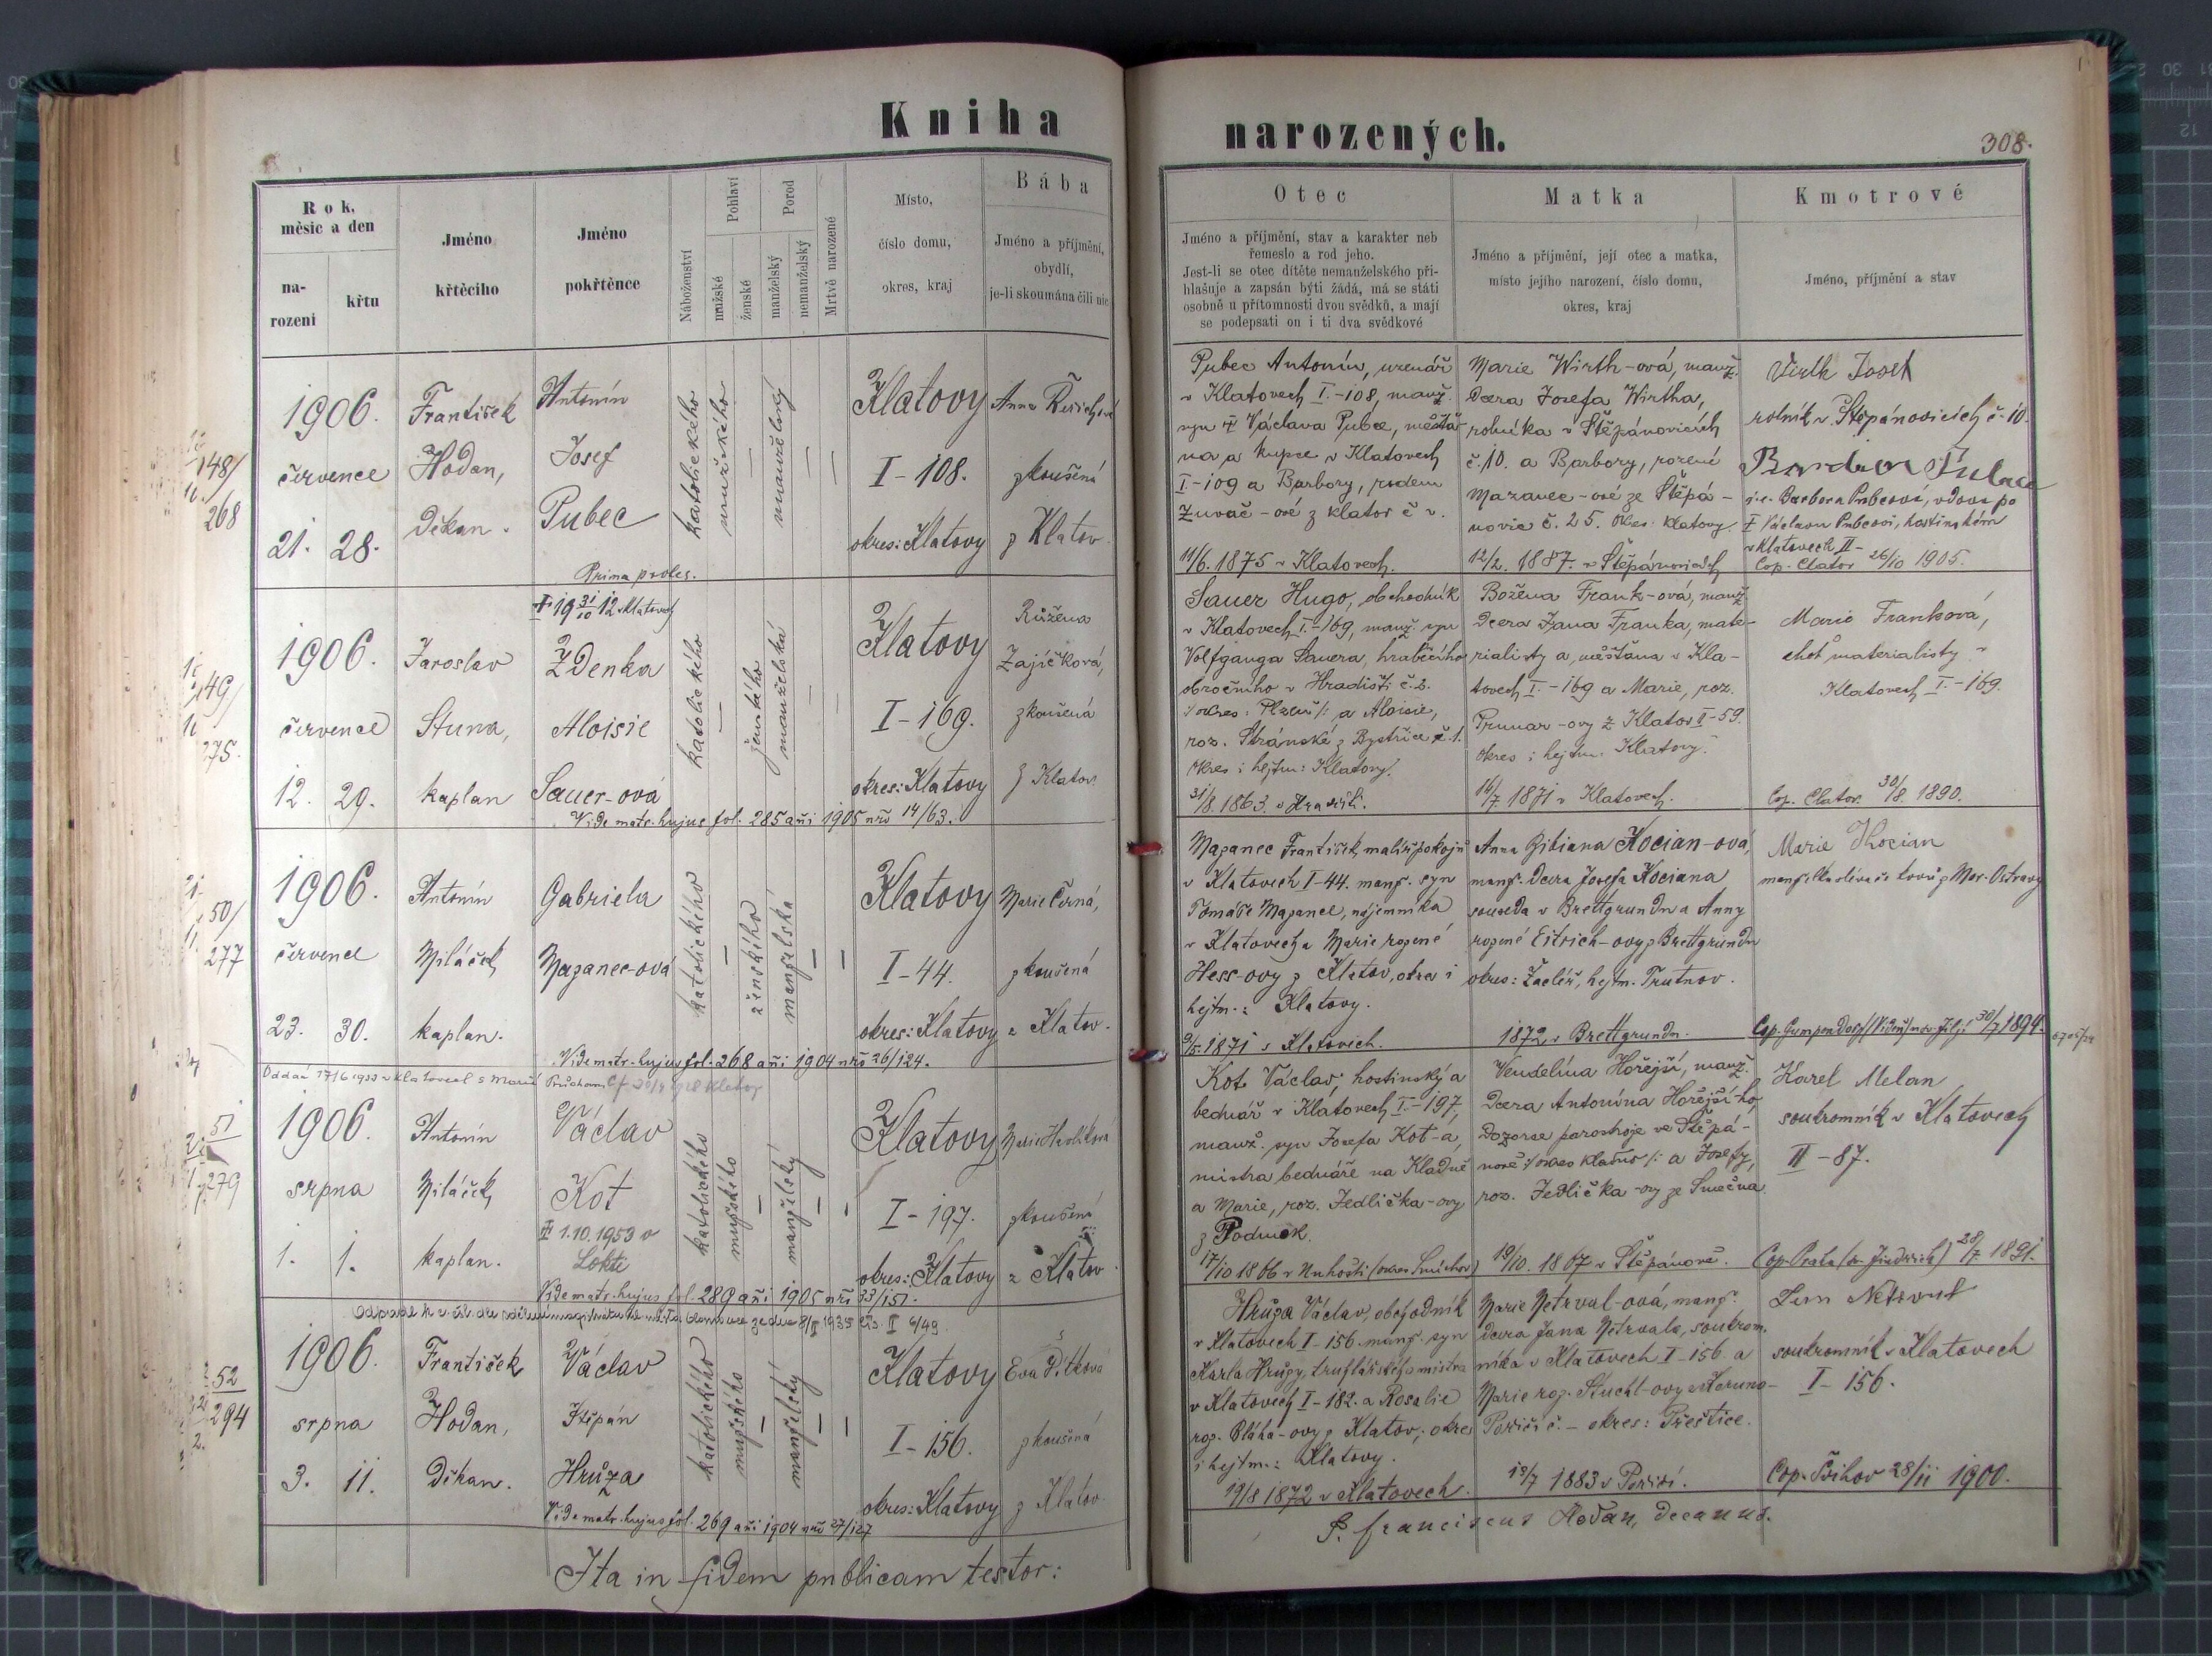 Kniha narozených.
308.
Rok, měsíc a den
narození
křtu
Jméno křtěcího
Jméno pokřtěnce
Náboženství
Pohlaví
mužské
ženské
Porod
manželský
nemanželský
Mrtvě narozené
Místo,
číslo domu,
okres, kraj
Bába
Jméno a příjmění,
obydlí,
je-li skoumána čili nic
Otec
Jméno a příjmění, stav a karakter neb
řemeslo a rod jeho.
Jest-li se otec dítěte nemanželského při-
hlašuje a zapsán býti žádá, má se státi
osobně u přítomnosti dvou svědků, a mají
se podepsati on i ti dva svědkové
Matka
Jméno a příjmění, její otec a matka,
místo jejího narození, číslo domu,
okres, kraj
Kmotrové
Jméno, příjmění a stav
148/
268
1906.
července
21. 28.
František
Hodan,
Děkan.
Antonín
Josef
Pubec
Prima proles.
katolického
mužského
manželský
Klatovy
I-108.
okres: Klatovy
Anna
zkoušená
z Klatov
Pubec Antonín, uzenář
v Klatovech I.-108, manž.
syn † Václava Pubce, měšťa-
na a kupce v Klatovech
I-109 a Barbory, rodem
Zuvač-ové z Klatov č v.
11/6. 1875 v Klatovech.
Marie Wirth-ová, manž.
Dcera Josefa Wirtha,
rolníka v Štěpánovicích
č. 10. a Barbory, rozené
Mazanec-ové ze Štěpá-
novic č. 25. okres: Klatovy.
12/2. 1887. v Štěpánovicích
Josef
rolník v Štěpánovicích č. 10.
Barbora Pubcová, vdova po
† Václavu Pubcovi, hostinském
v Klatovech II-
Cop. Clatov 26/10 1905.
149/
275.
† 19 31/10 12 v Klatovech
1906.
července
12. 29.
Jaroslav
Stuna,
kaplan
Zdenka
Aloisie
Sauer-ová
Vide matr. hujus fol. 285 añi 1905 nrō 14/63.
katolického
ženského
manželská
Klatovy
I-169.
okres: Klatovy
Růžena
Zajíčková,
zkoušená
z Klatov
Sauer Hugo, obchodník
v Klatovech I.-169, manž. syn
Volfganga Sauera, hraběcího
obročního v Hradišti č. 2.
/: okres: Plzeň :/ a Aloisie,
roz. Stránské z Bystřice č. 1.
okres i hejtm: Klatovy.
31/8. 1863. v Hradišti.
Božena Frank-ová, manž.
Dcera Jana Franka, mate-
rialisty a měšťana v Kla-
tovech I.-169 a Marie, roz.
Prunar-ovy z Klatov II-59.
okres i hejtm. Klatovy.
14/7 1871 v Klatovech.
Marie Franková,
choť materialisty v
Klatovech I.-169.
Cop. Clatov. 30/8. 1890.
150/
277
1906.
července
23. 30.
Antonín
Miláček,
kaplan.
Gabriela
Mazanec-ová
Vide matr. hujus fol. 268 añi 1904 nrō 26/124.
katolického
ženského
manželská
Klatovy
I-44.
okres: Klatovy
Marie Černá,
zkoušená
z Klatov.
Mazanec František, malíř pokojů
v Klatovech I-44. manž. syn
Tomáše Mazance, nájemníka
v Klatovech a Marie rozené
Hess-ovy z Klatov, okres i
hejtm.: Klatovy.
9/5. 1871 v Klatovech.
Anna Bibiana Kocian-ová,
manž. dcera Josefa Kociana
souseda v Brettgrundu a Anny
rozené Eitrich-ovy z Brettgrundu
okres: Žacléř, hejtm. Trutnov.
1872 v Brettgrundu.
Marie Kocian
manželka slévače kovů z Mor. Ostravy
Cop. Gumpendorf (Vídeň) 30/7 1894.
Oddán 17/6 1933 v Klatovech s Marií
151
279
1906.
srpna
1. 1.
Antonín
Miláček,
kaplan.
Václav
Kot
† 1.10.1953 v
Lokti
Vide matr. hujus fol. 289 añi 1905 nrō 33/151.
katolického
mužského
manželský
Klatovy
I-197.
okres: Klatovy
Marie Havlíková
zkoušená
z Klatov.
Kot Václav, hostinský a
bednář v Klatovech I.-197,
manž. syn Josefa Kot-a,
mistra bednáře na Kladně
a Marie, roz. Jedlička-ovy
z
17/10 1866 v (okres Smíchov)
Vendelína Hořejší, manž.
Dcera Antonína Hořejší-ho,
Dozorce parostroje ve Štěpá-
nově /: okres Kladno :/ a Josefy,
roz. Jedlička-ovy ze Smečna.
19/10. 1867 v Štěpánově.
Karel Melan
soukromník v Klatovech
II-87.
Cop. Praha (sv. Jindřich) 28/7 1891.
52
294
1906.
srpna
3. 11.
František
Hodan,
Děkan.
Václav
Štěpán
Hruza
Vide matr. hujus fol. 269 añi 1904 nrō 27/127
katolického
mužského
manželský
Klatovy
I-156.
okres: Klatovy
Eva Pítková
zkoušená
z Klatov.
Hruza Václav, obchodník
v Klatovech I-156. manž. syn
Karla Hruzy, truhlářského mistra
v Klatovech I-182. a Rosalie
roz. Bláha-ovy z Klatov; okres
i hejtm.: Klatovy.
19/8 1872 v Klatovech.
Marie Netrval-ová, manž.
dcera Jana Netrvala, soukrom-
níka v Klatovech I-156. a
Marie roz. Stuchl-ovy
Poříčí č. - okres: Přeštice.
19/7 1883 v Poříčí.
Netrval
soukromník v Klatovech
I-156.
Cop. Švihov 28/11 1900.
Ita in fidem publicam testor:
P. Franciscus Hodan, decanus.